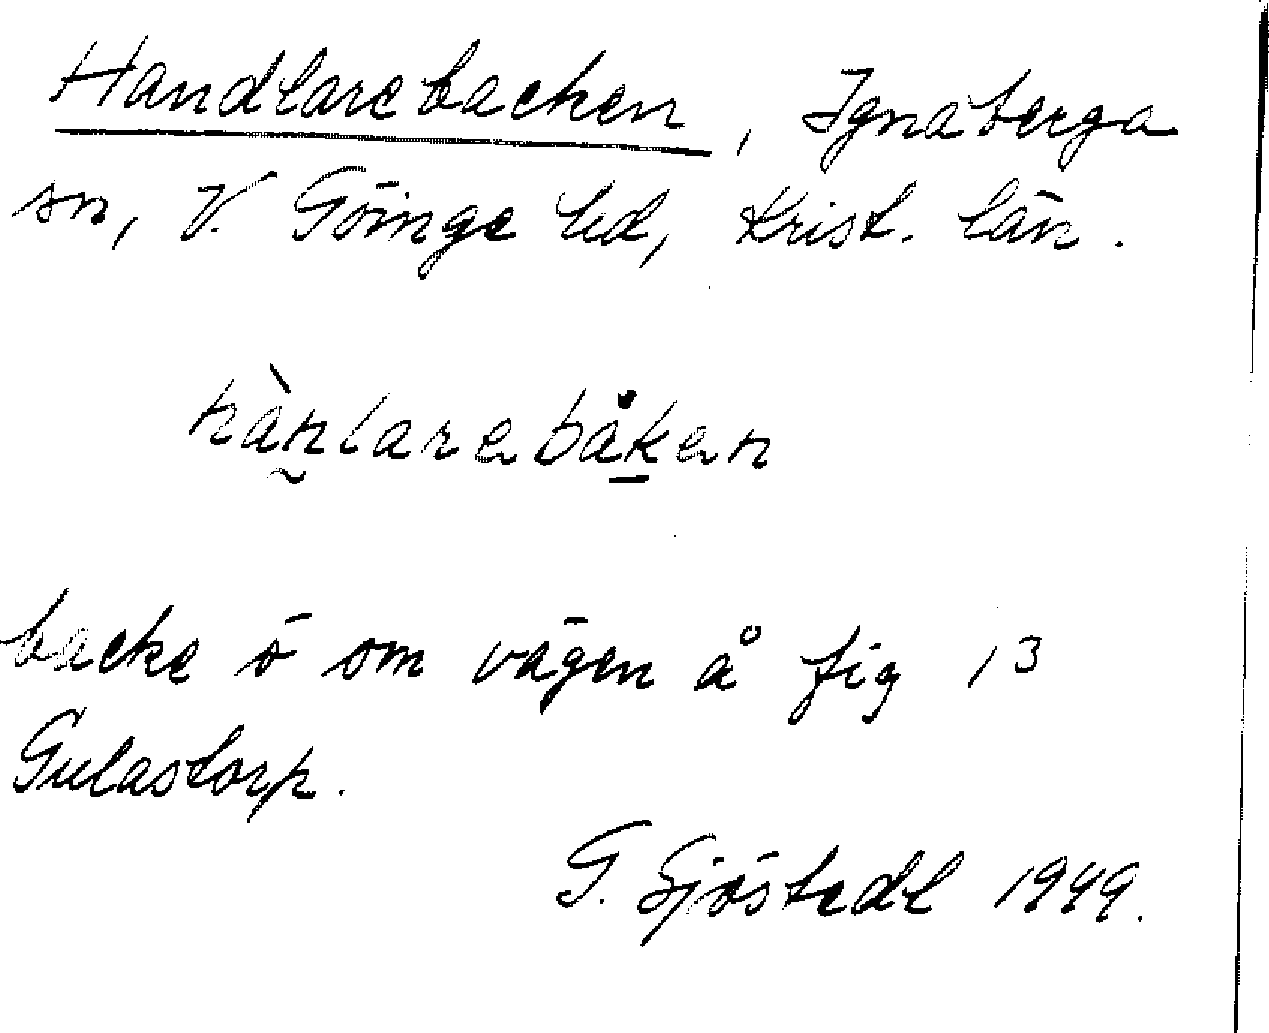 Handlarebacken, Ignaberga
sn, V. Göinge hd, Krist. län.
hàn̰larebåḵen
backe ö om vägen å fig 13
Gulastorp.
G. Sjöstedt 1949.